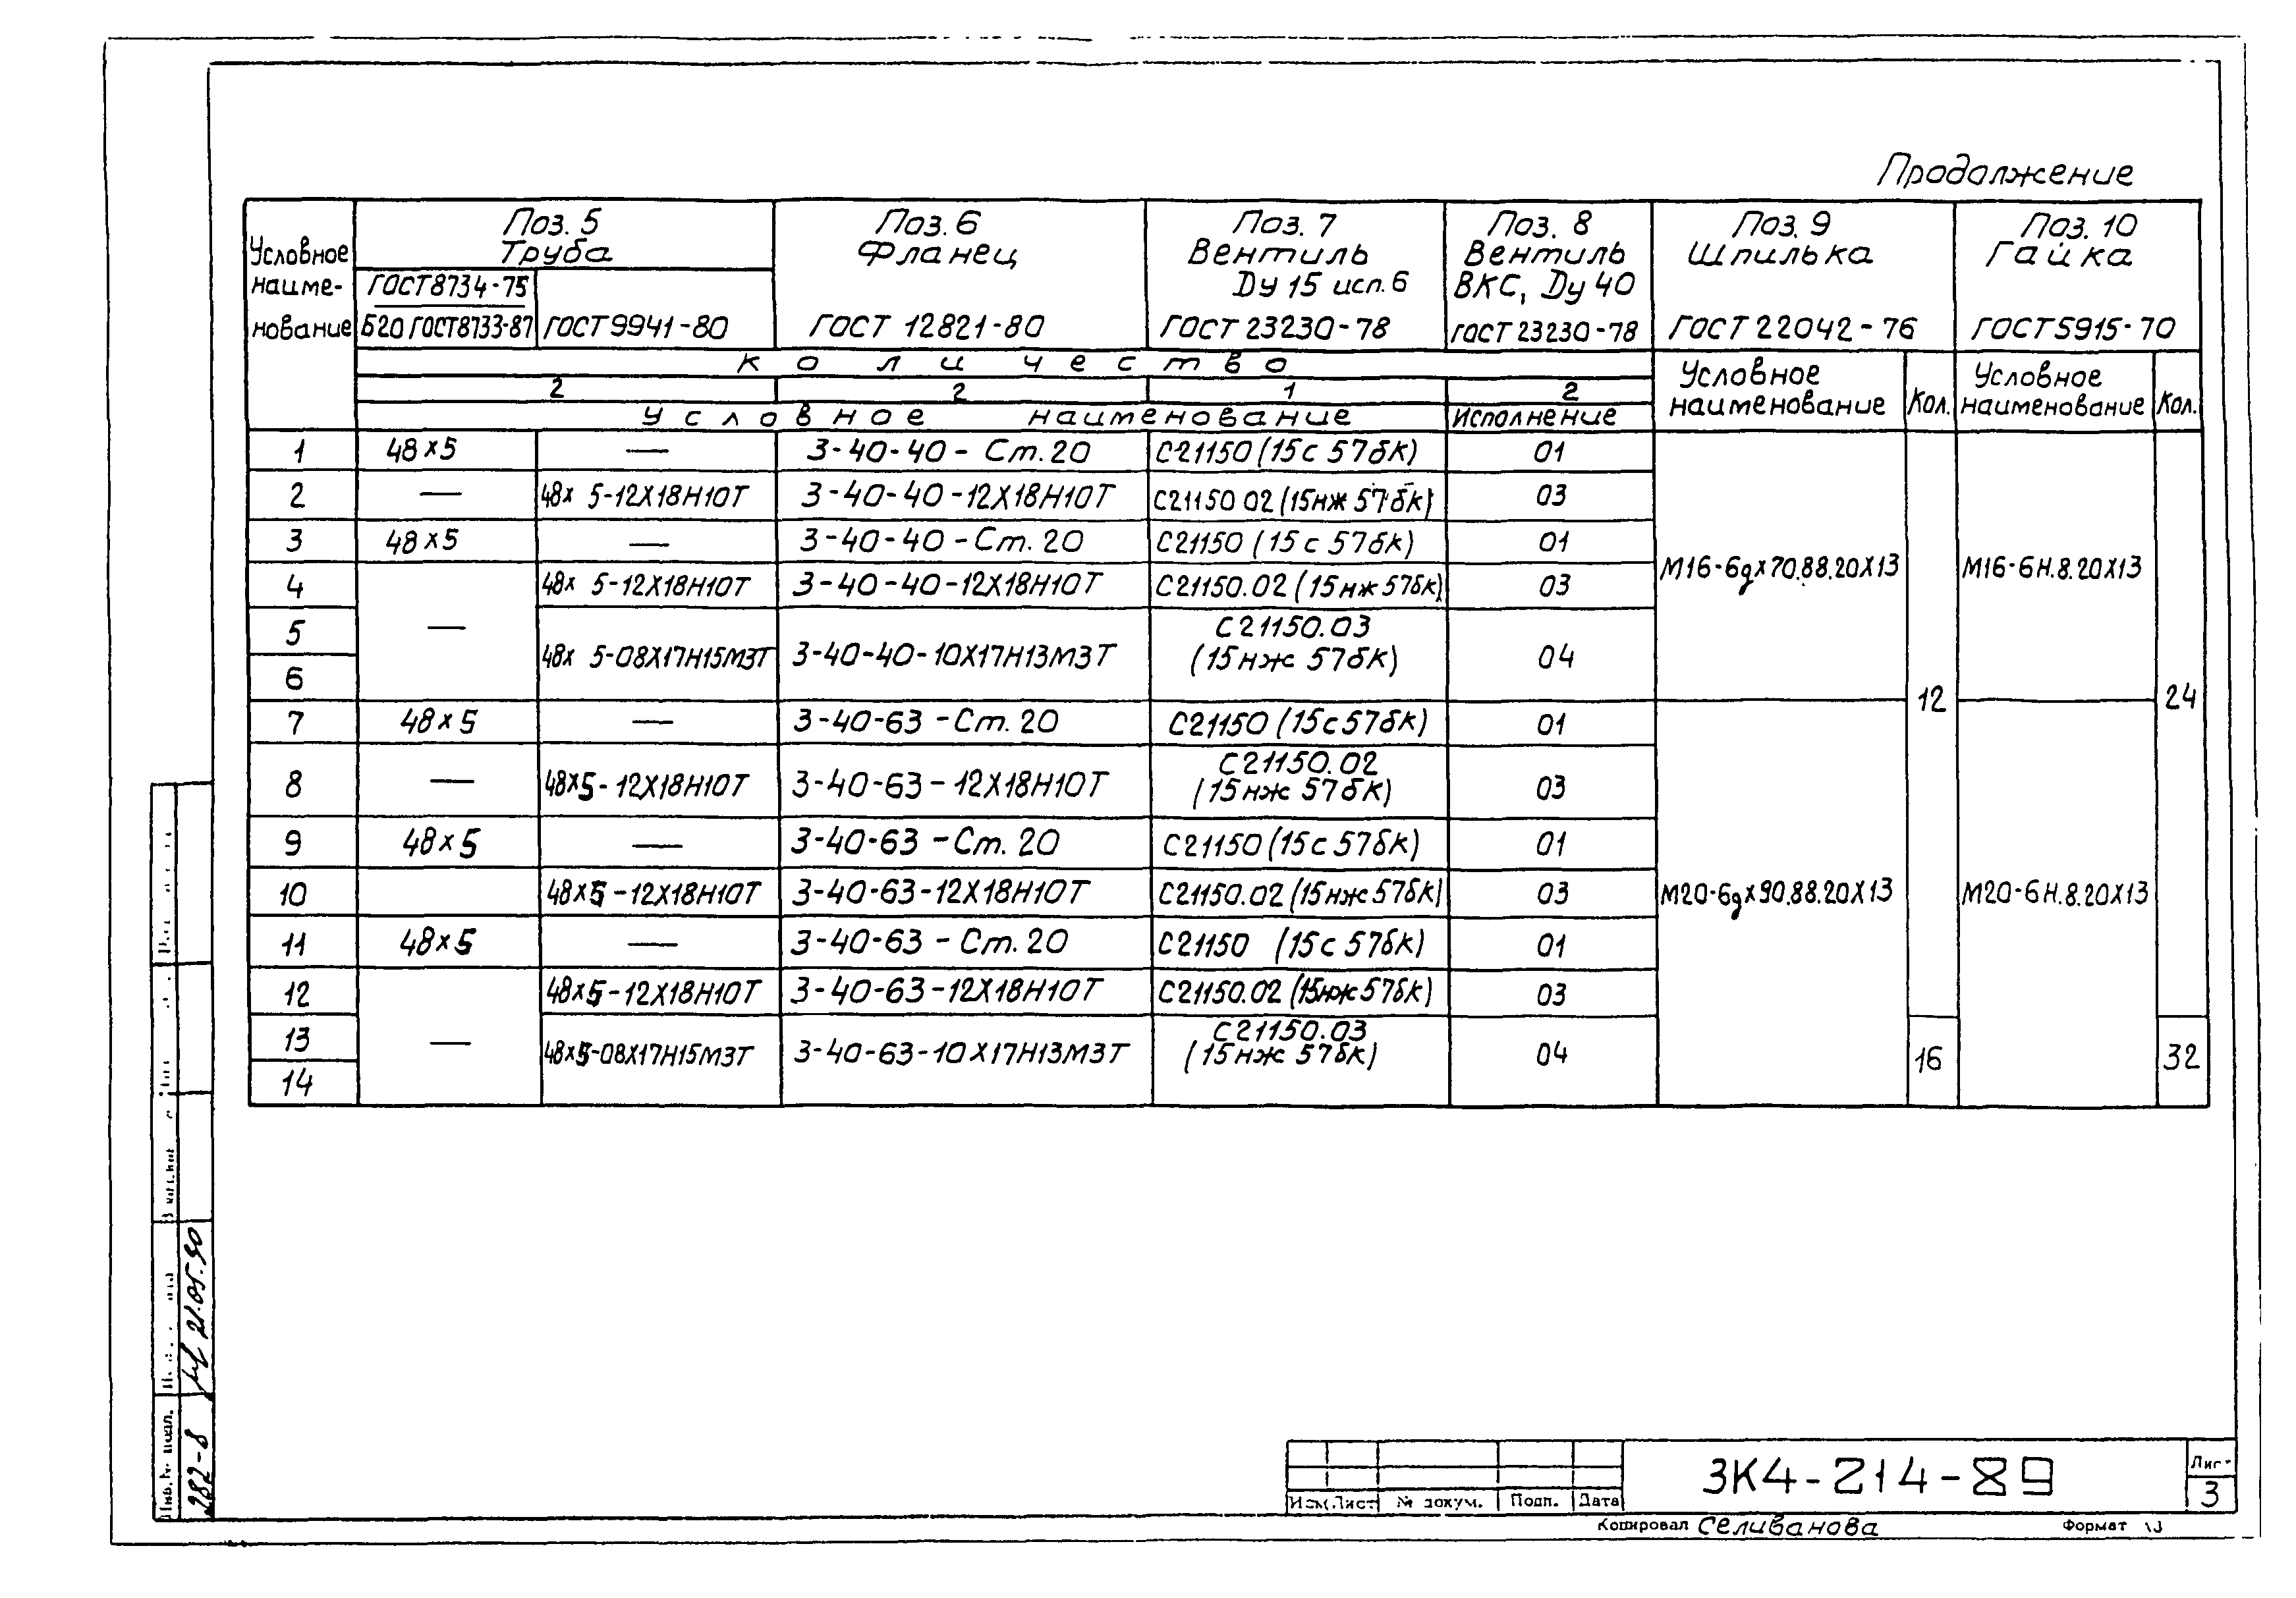 Продолжение
Условное наиме- нование
Поз. 5 Труба
ГОСТ 8734-75
Б20 ГОСТ 8733-87
ГОСТ 9941-80
Поз. 6 Фланец
ГОСТ 12821-80
Поз. 7 Вентиль Ду 15 исп. 6
ГОСТ 23230-78
Поз. 8 Вентиль ВКС, Ду 40
ГОСТ 23230-78
Поз. 9 Шпилька
ГОСТ 22042-76
Поз. 10 Гайка
ГОСТ 5915-70
количество
2 2 1 2
Условное наименование Исполнение
Условное наименование Кол. Условное наименование Кол.
1 48х5 — 3-40-40-Ст.20 С21150 (15с 57бк) 01
2 — 48х 5-12Х18Н10Т 3-40-40-12Х18Н10Т С21150 02 (15нж 57бк) 03
3 48х5 — 3-40-40-Ст.20 С21150 (15с 57бк) 01
М16-6gх70.88.20Х13 М16-6Н.8.20Х13
4 48х 5-12Х18Н10Т 3-40-40-12Х18Н10Т С21150.02 (15нж 57бк) 03
5 — С21150.03
48х 5-08Х17Н15М3Т 3-40-40-10Х17Н13М3Т (15нж 57бк) 04
6
12 24
7 48х5 — 3-40-63-Ст.20 С21150 (15с57бк) 01
С21150.02
8 — 48х5-12Х18Н10Т 3-40-63-12Х18Н10Т (15нж 57бк) 03
9 48х5 — 3-40-63-Ст.20 С21150 (15с 57бк) 01
10 48х5-12Х18Н10Т 3-40-63-12Х18Н10Т С21150.02 (15нж 57бк) 03 М20-6gх90.88.20Х13 М20-6Н.8.20Х13
11 48х5 — 3-40-63-Ст.20 С21150 (15с 57бк) 01
12 48х5-12Х18Н10Т 3-40-63-12Х18Н10Т С21150.02 (15нж 57бк) 03
13 — С21150.03
48х5-08Х17Н15М3Т 3-40-63-10Х17Н13М3Т (15нж 57бк) 04 16 32
14
21.05.90
Инв.№ подл.
282-8
Изм. Лист № докум. Подп. Дата
ЗК4-214-89
Лист
3
Копировал Селиванова
Формат